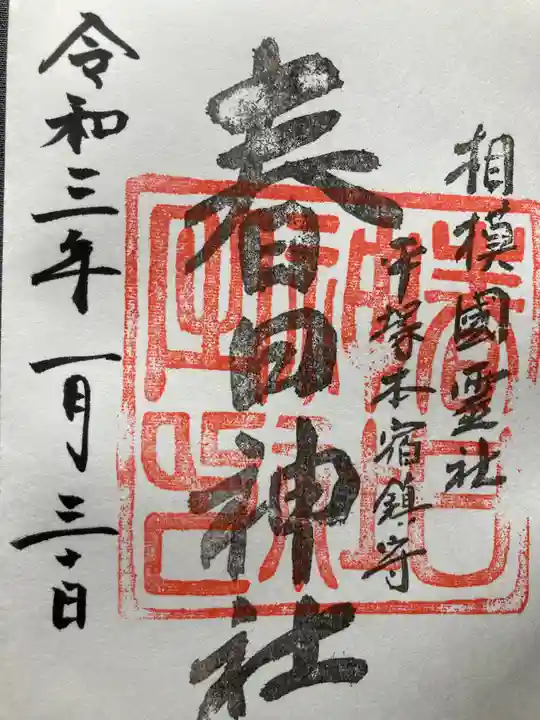 相模國霊社
平塚本宿鎮守
春日神社
令和三年一月三十日